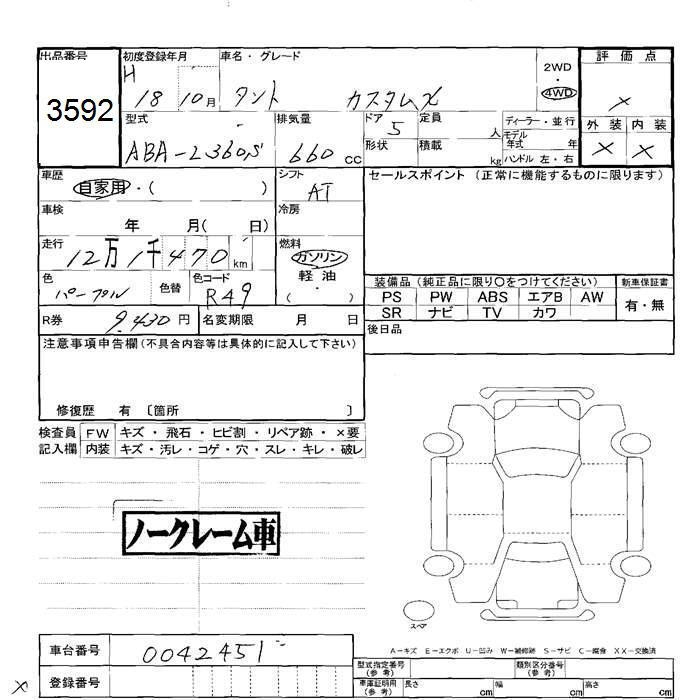 出品番号 初度登録年月 車名・グレード 2WD・4WD 評価点
3592 H 18 10月 タント カスタムX ×
型式 排気量 ドア 定員 ディーラー・並行 外装 内装
ABA-L360S 660cc 5 人 モデル年式 年 × ×
形状 積載 kg ハンドル 左・右
車歴 自家用・( ) シフト AT セールスポイント (正常に機能するものに限ります)
車検 年 月( 日) 冷房
走行 12万1千470km 燃料 ガソリン 軽油 ( )
色 パープル 色替 色コード R49
装備品 (純正品に限り〇をつけてください) 新車保証書
PS PW ABS エアB AW 有・無
SR ナビ TV カワ
R券 9,430円 名変期限 月 日 後日品
注意事項申告欄(不具合内容等は具体的に記入して下さい)
修復歴 有 〔箇所 〕
検査員 FW キズ・飛石・ヒビ割・リペア跡・×要
記入欄 内装 キズ・汚レ・コゲ・穴・スレ・キレ・破レ
ノークレーム車
スペア
A−キズ E−エクボ U−凹み W−補修跡 S−サビ C−腐食 XX−交換済
車台番号 0042451
登録番号
型式指定番号(参考) 類別区分番号(参考)
車庫証明用(参考) 長さ cm 幅 cm 高さ cm
×